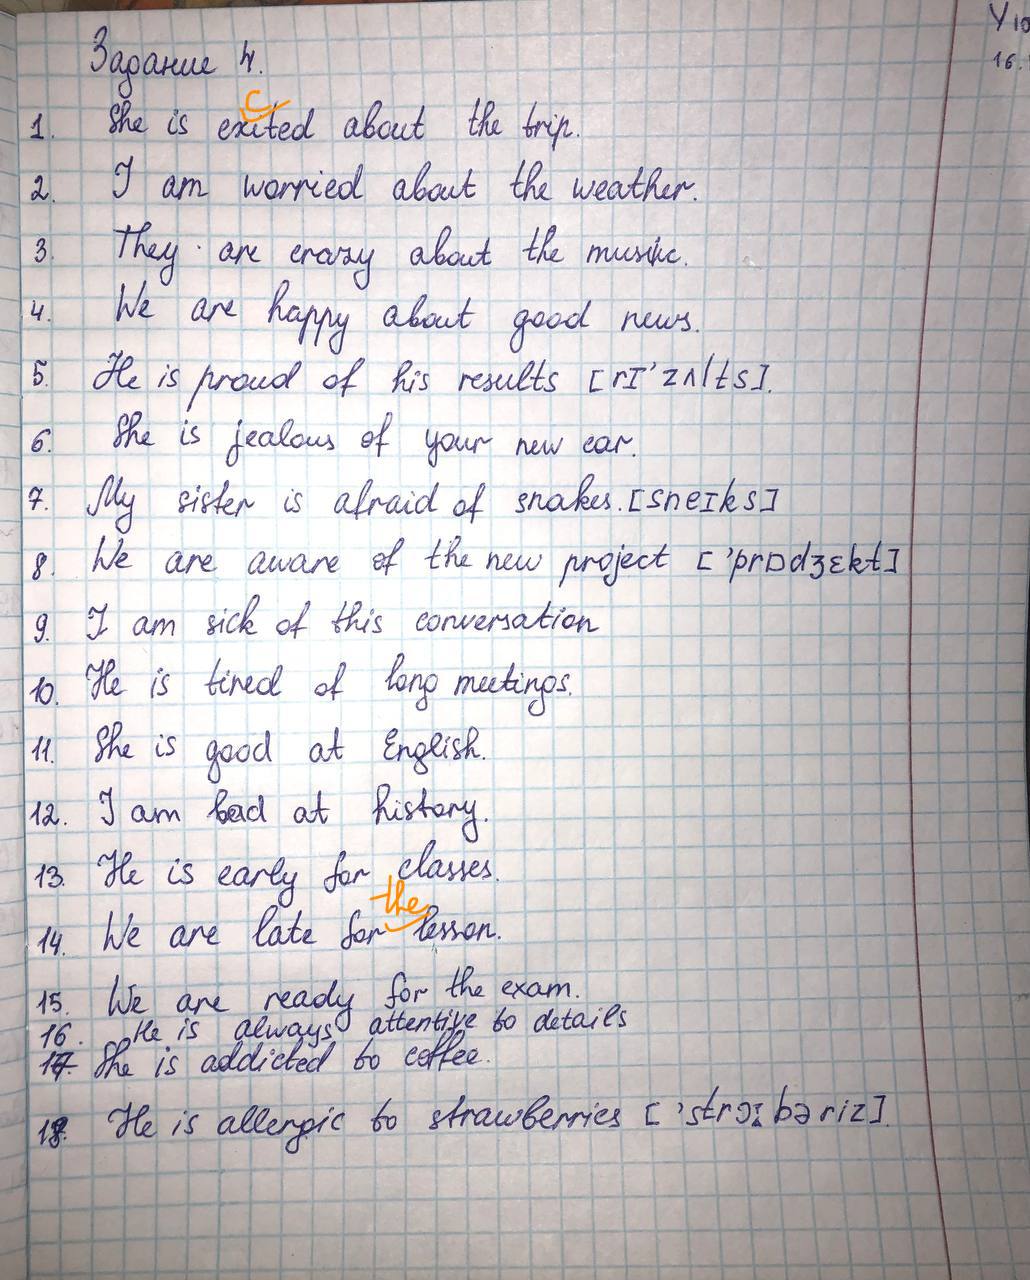 Ую
16.
Задание 4.
c
1. She is exited about the trip.
2. I am worried about the weather.
3. They are crazy about the music.
4. We are happy about good news.
5. He is proud of his results [rɪ'zʌlts].
6. She is jealous of your new car.
7. My sister is afraid of snakes. [sneɪks]
8. We are aware of the new project ['prɒdʒɛkt]
9. I am sick of this conversation
10. He is tired of long meetings.
11. She is good at English.
12. I am bad at history.
13. He is early for classes.
the
14. We are late for lesson.
15. We are ready for the exam.
16. He is always attentive to details
17. She is addicted to coffee.
18. He is allergic to strawberries ['strɔːbəriz].